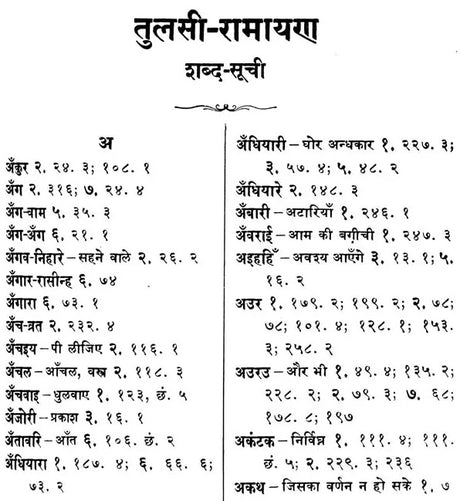 तुलसी-रामायण
शब्द-सूची
अ
अँकुर २. २४. ३; १०८. १
अँग २. ३१६; ७. २४. ४
अँग-बाम ५. ३५. ३
अँग-अँग ६. २१. १
अँगव-निहारे – सहने वाले २. २६. २
अँगार-रासीन्ह ६. ७४
अँगारा ६. ७३. १
अँच-ब्रत २. २३२. ४
अँचइय – पी लीजिए २. ११६. १
अँचल – आँचल, वस्त्र २. ११८. ३
अँचवाइ – धुलवाए १. १२३, छं. ५
अँजोरी – प्रकाश ३. १६. १
अँतावरि – आँत ६. १०६. छं. २
अँधियारा १. १८७. ४; ६. ६६. ६;
७३. २
अँधियारी – घोर अन्धकार १. २२७. ३;
३. ५७. ४; ५. ४८. २
अँधियारे २. १४८. ३
अँबारी – अटारियाँ १. २४६. १
अँवराई – आम की बग़ीची १. २४७. ३
अइहहिँ – अवश्य आएँगे ३. १३. १; ५.
१६. २
अउर १. १७९. २; १९९. २; २. ७८;
७८; १०१. ४; १२८. १; १५३.
३; २५८. २
अउरउ – और भी १. ४९. ४; १३५. २;
२२८. २; २. ७९. ३; ७. ६८;
१७८. ८; १९७
अकंटक – निर्विघ्न १. १११. ४; १११.
छं. ५; २. २२९. ३; २३६
अकथ – जिसका वर्णन न हो सके १. ७